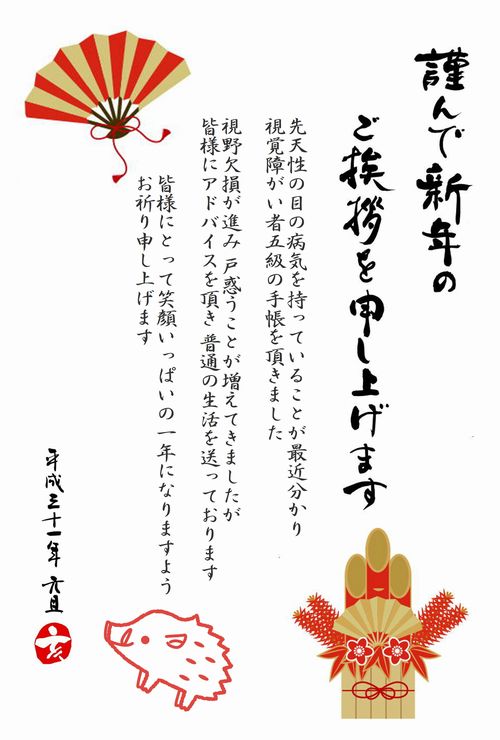 謹んで新年の
ご挨拶を申し上げます
先天性の目の病気を持っていることが最近分かり
視覚障がい者五級の手帳を頂きました
視野欠損が進み 戸惑うことが増えてきましたが
皆様にアドバイスを頂き 普通の生活を送っております
皆様にとって笑顔いっぱいの一年になりますよう
お祈り申し上げます
平成三十一年 元旦
亥